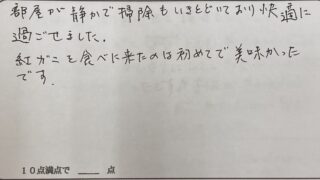 部屋が静かで掃除もいきとどいており快適に
過ごせました。
紅ガニを食べに来たのは初めてで美味かった
です.
10点満点で ____ 点